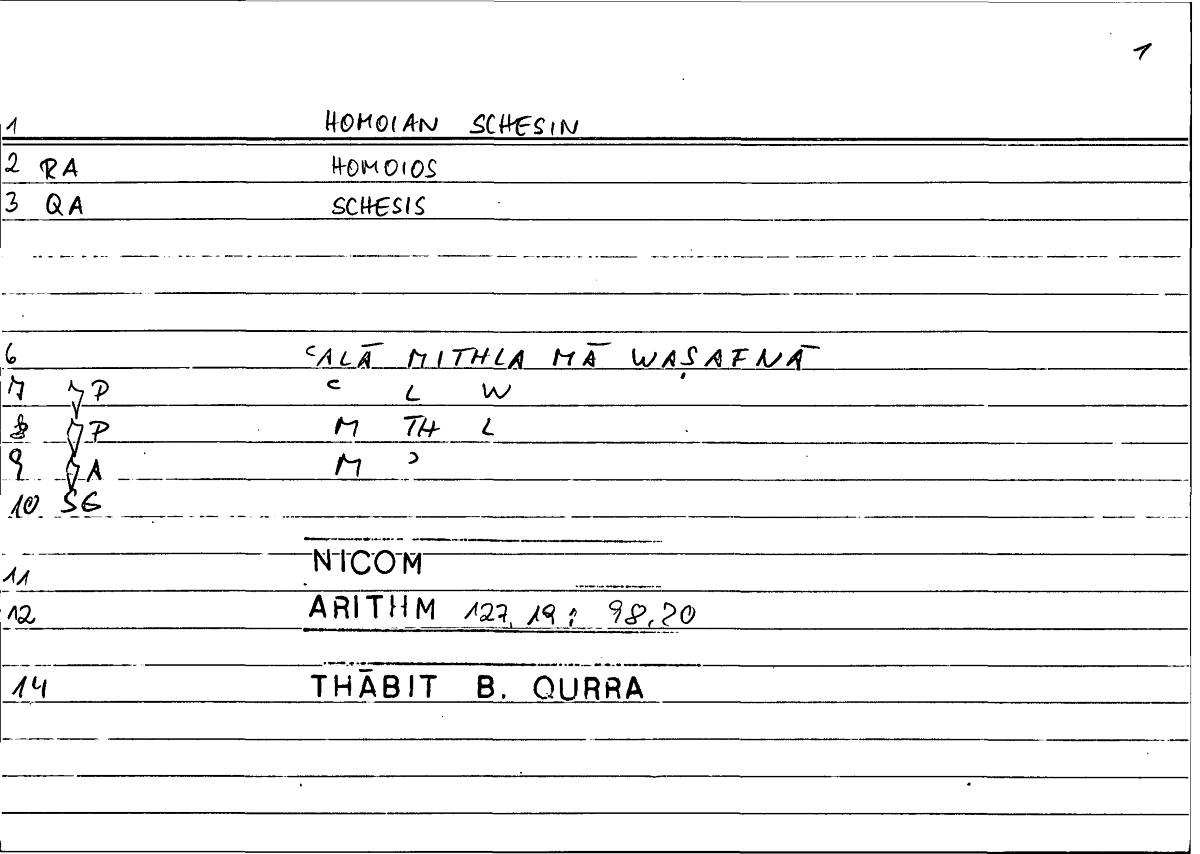 1
1 HOMOIAN SCHESIN
2 RA HOMOIOS
3 QA SCHESIS
6 ʿALĀ MITHLA MĀ WAṢAFNĀ
7 P ʿ L W
8 P M TH L
9 A M ʾ
10 SG
11 NICOM
12 ARITHM 127,19; 98,20
14 THĀBIT B. QURRA